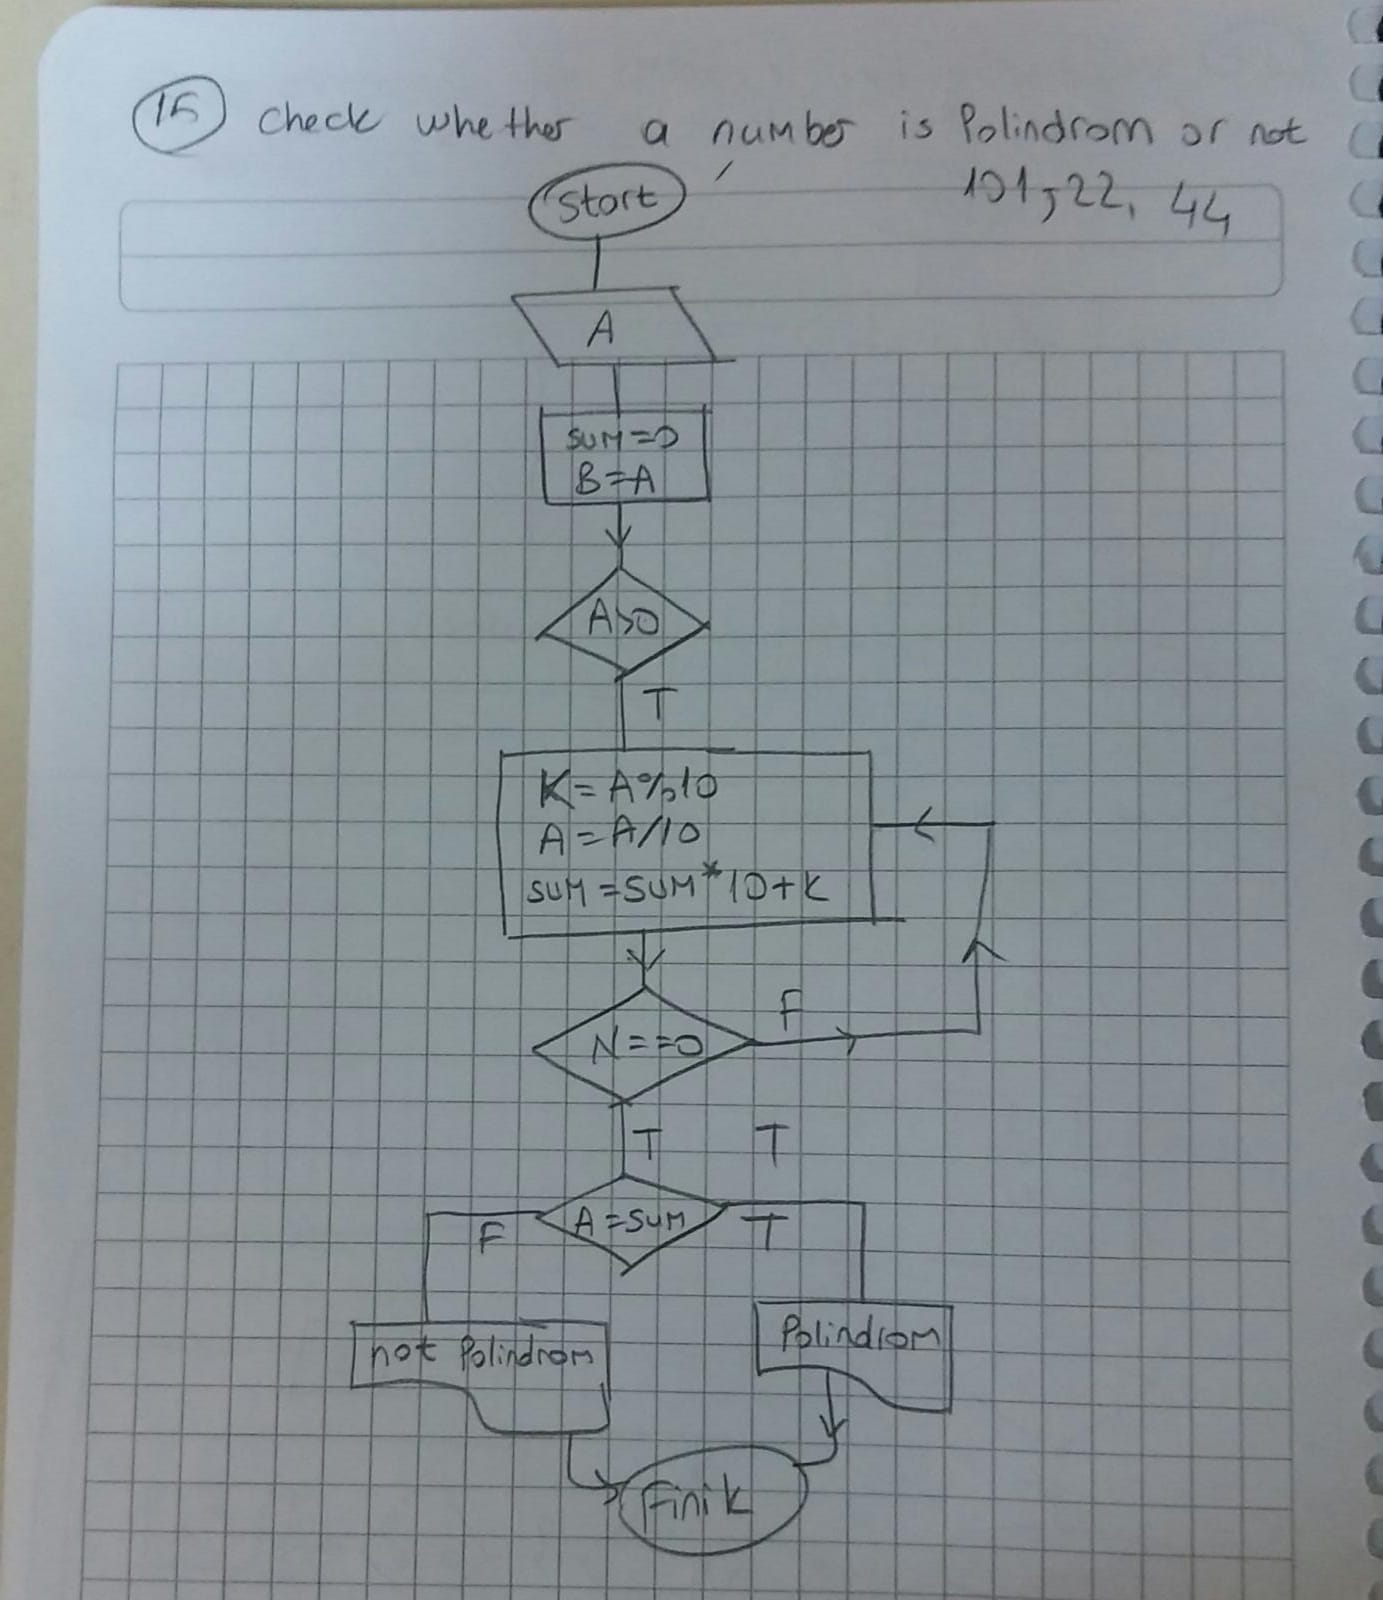 15 check whether a number is Polindrom or not
101, 22, 44
Start
A
SUM=0
B=A
A>0
T
K=A%10
A=A/10
SUM=SUM*10+K
N==0
F
T T
A=SUM
F
T
not Polindrom
Polindrom
Finik